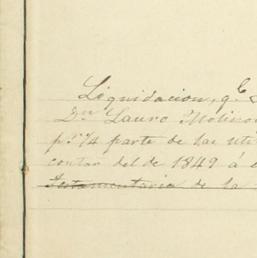 Liquidacion, q.e
Dn Lauro Molino
p.r 1/4 parte de las uti
contar del de 1849 á
Testamentaria de la